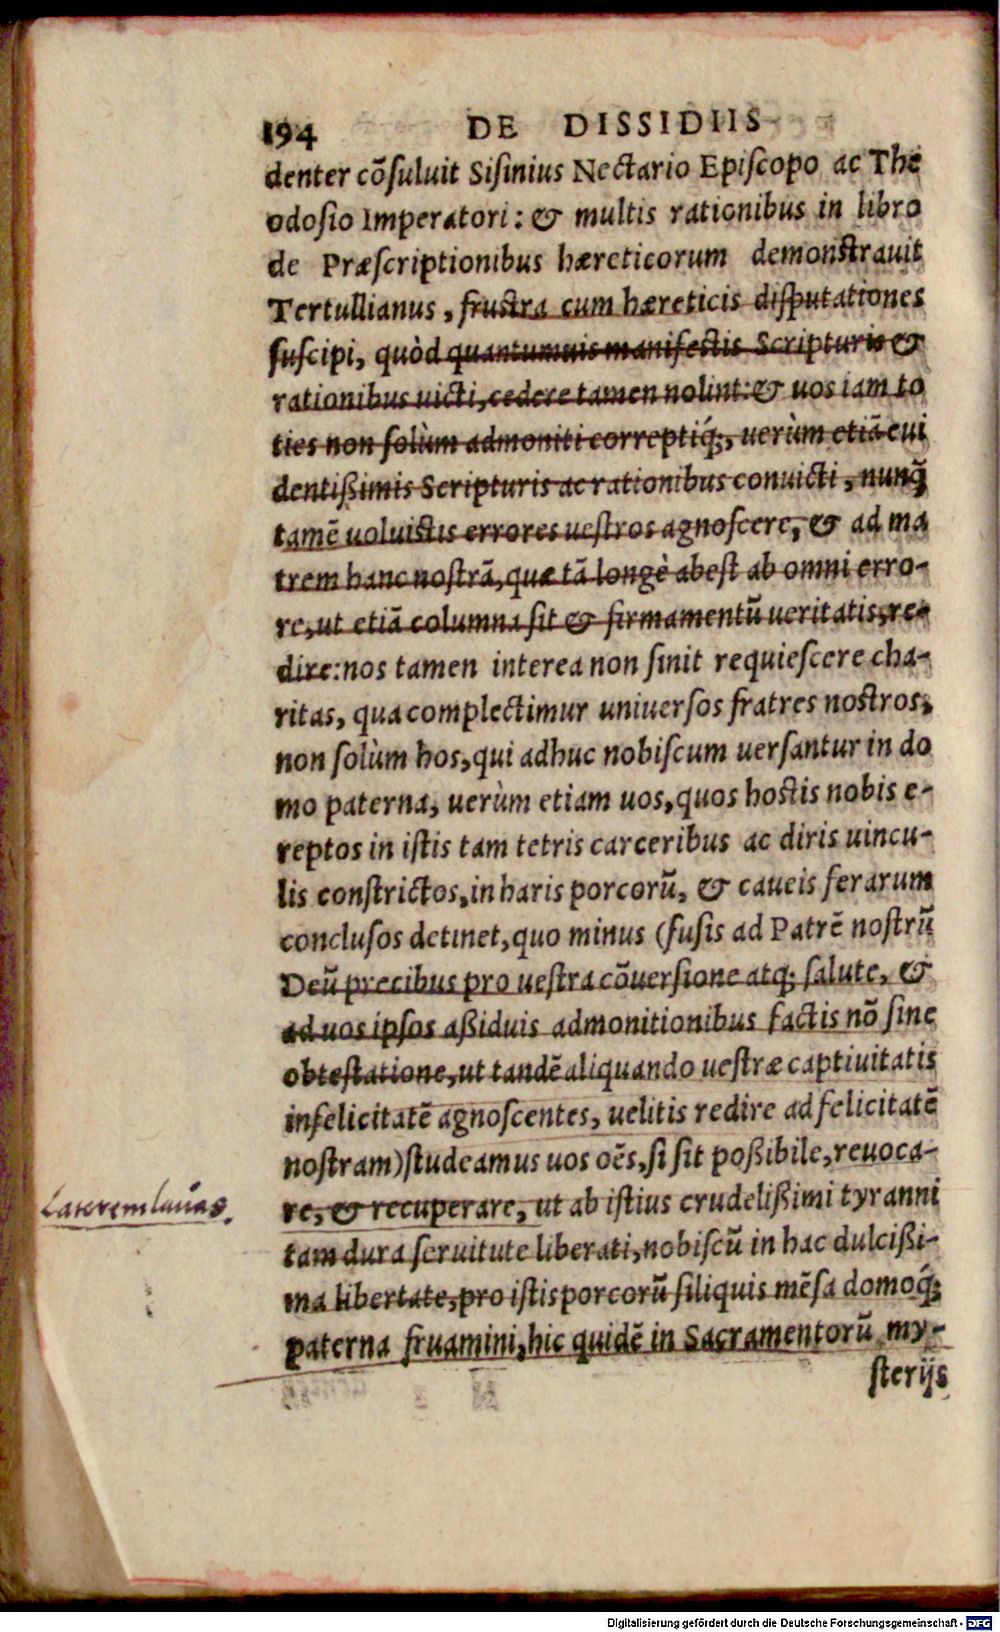 194 DE DISSIDIIS
denter cõſuluit Siſinius Nectario Epiſcopo ac The
odoſio Imperatori: & multis rationibus in libro
de Præſcriptionibus hæreticorum demonſtrauit
Tertullianus, fruſtra cum hæreticis diſputationes
ſuſcipi, quòd quantumuis manifeſtis Scripturis &
rationibus uicti, cedere tamen nolint: & uos iam to
ties non ſolùm admoniti correptiq́;, uerùm etiã eui
dentißimis Scripturis ac rationibus convicti, nunq̃
tamẽ uoluiſtis errores ueſtros agnoſcere, & ad ma
trem hanc noſtrã, quæ tã longè abeſt ab omni erro-
re, ut etiã columna ſit & firmamentũ ueritatis, re-
dire: nos tamen interea non ſinit requieſcere cha-
ritas, qua complectimur uniuerſos fratres noſtros,
non ſolùm hos, qui adhuc nobiſcum uerſantur in do
mo paterna, uerùm etiam uos, quos hoſtis nobis e-
reptos in iſtis tam tetris carceribus ac diris uincu-
lis conſtrictos, in haris porcorũ, & caueis ferarum
concluſos detinet, quo minus (fuſis ad Patrẽ noſtrũ
Deũ precibus pro ueſtra cõuerſione atq; ſalute, &
ad uos ipſos aßiduis admonitionibus factis nõ ſine
obteſtatione, ut tandẽ aliquando ueſtræ captiuitatis
infelicitatẽ agnoſcentes, uelitis redire ad felicitatẽ
noſtram) ſtudeamus uos oẽs, ſi ſit poßibile, reuoca-
re, & recuperare, ut ab iſtius crudelißimi tyranni
Laterem lauas.
tam dura ſeruitute liberati, nobiſcũ in hac dulcißi-
ma libertate, pro iſtis porcorũ ſiliquis mẽſa domoq́;
paterna fruamini, hic quidẽ in Sacramentorũ my-
ſterijs
Digitalisierung gefördert durch die Deutsche Forschungsgemeinschaft - DFG